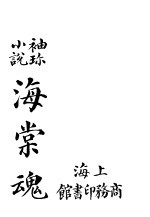 袖珍小說
海棠魂
上海
商務印書館